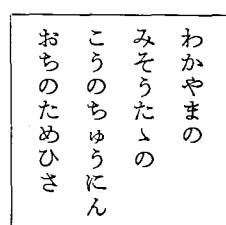 わかやまの
みそうたゝの
こうのちゅうにん
おちのためひさ